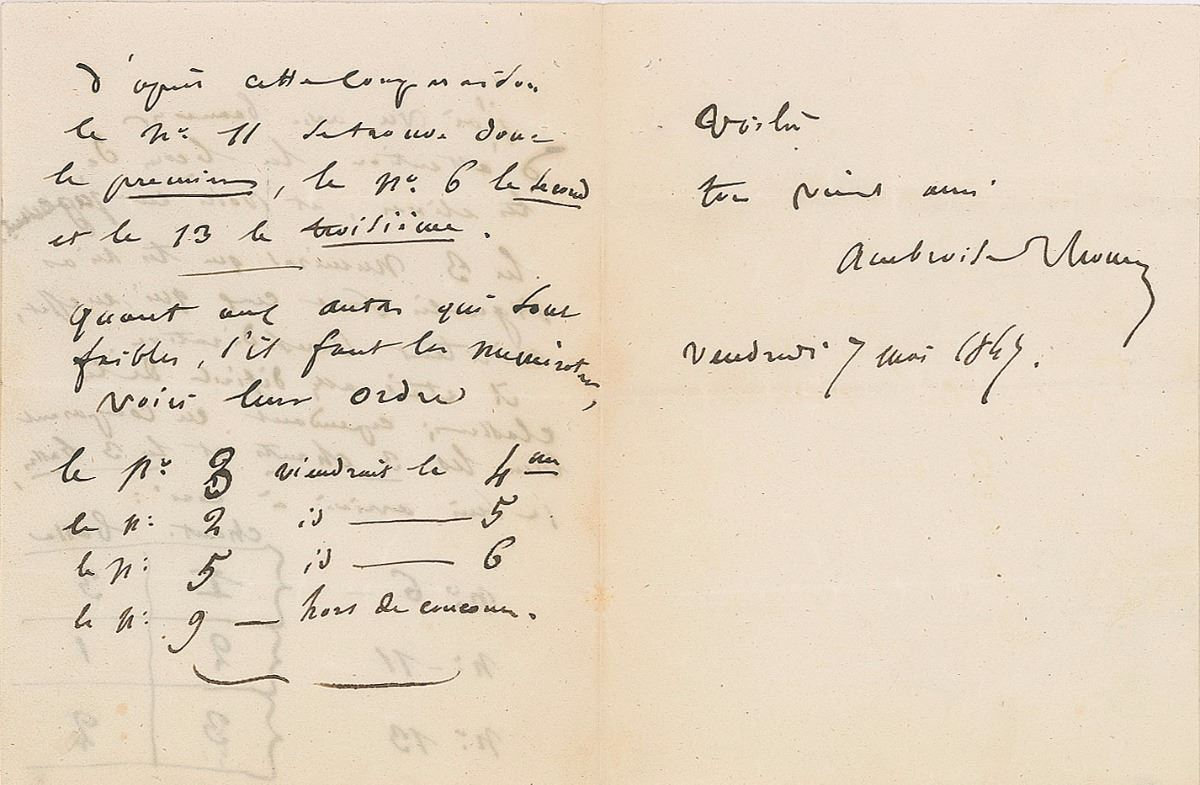 D'après cette Comparaison
le No. 11 se trouve donc
le premier, le No. 6 le second
et le 13 le troisième.
quant aux autres qui sont
faibles, s'il faut les numéroter,
voici leur ordre
le No. 3 viendrait le 4me
le No. 2 id —— 5
le No. 5 id —— 6
le No. 9 — hors de concours.
Voilà
ton vieux ami
Ambroise Thomas
Vendredi 7 mai 1847.